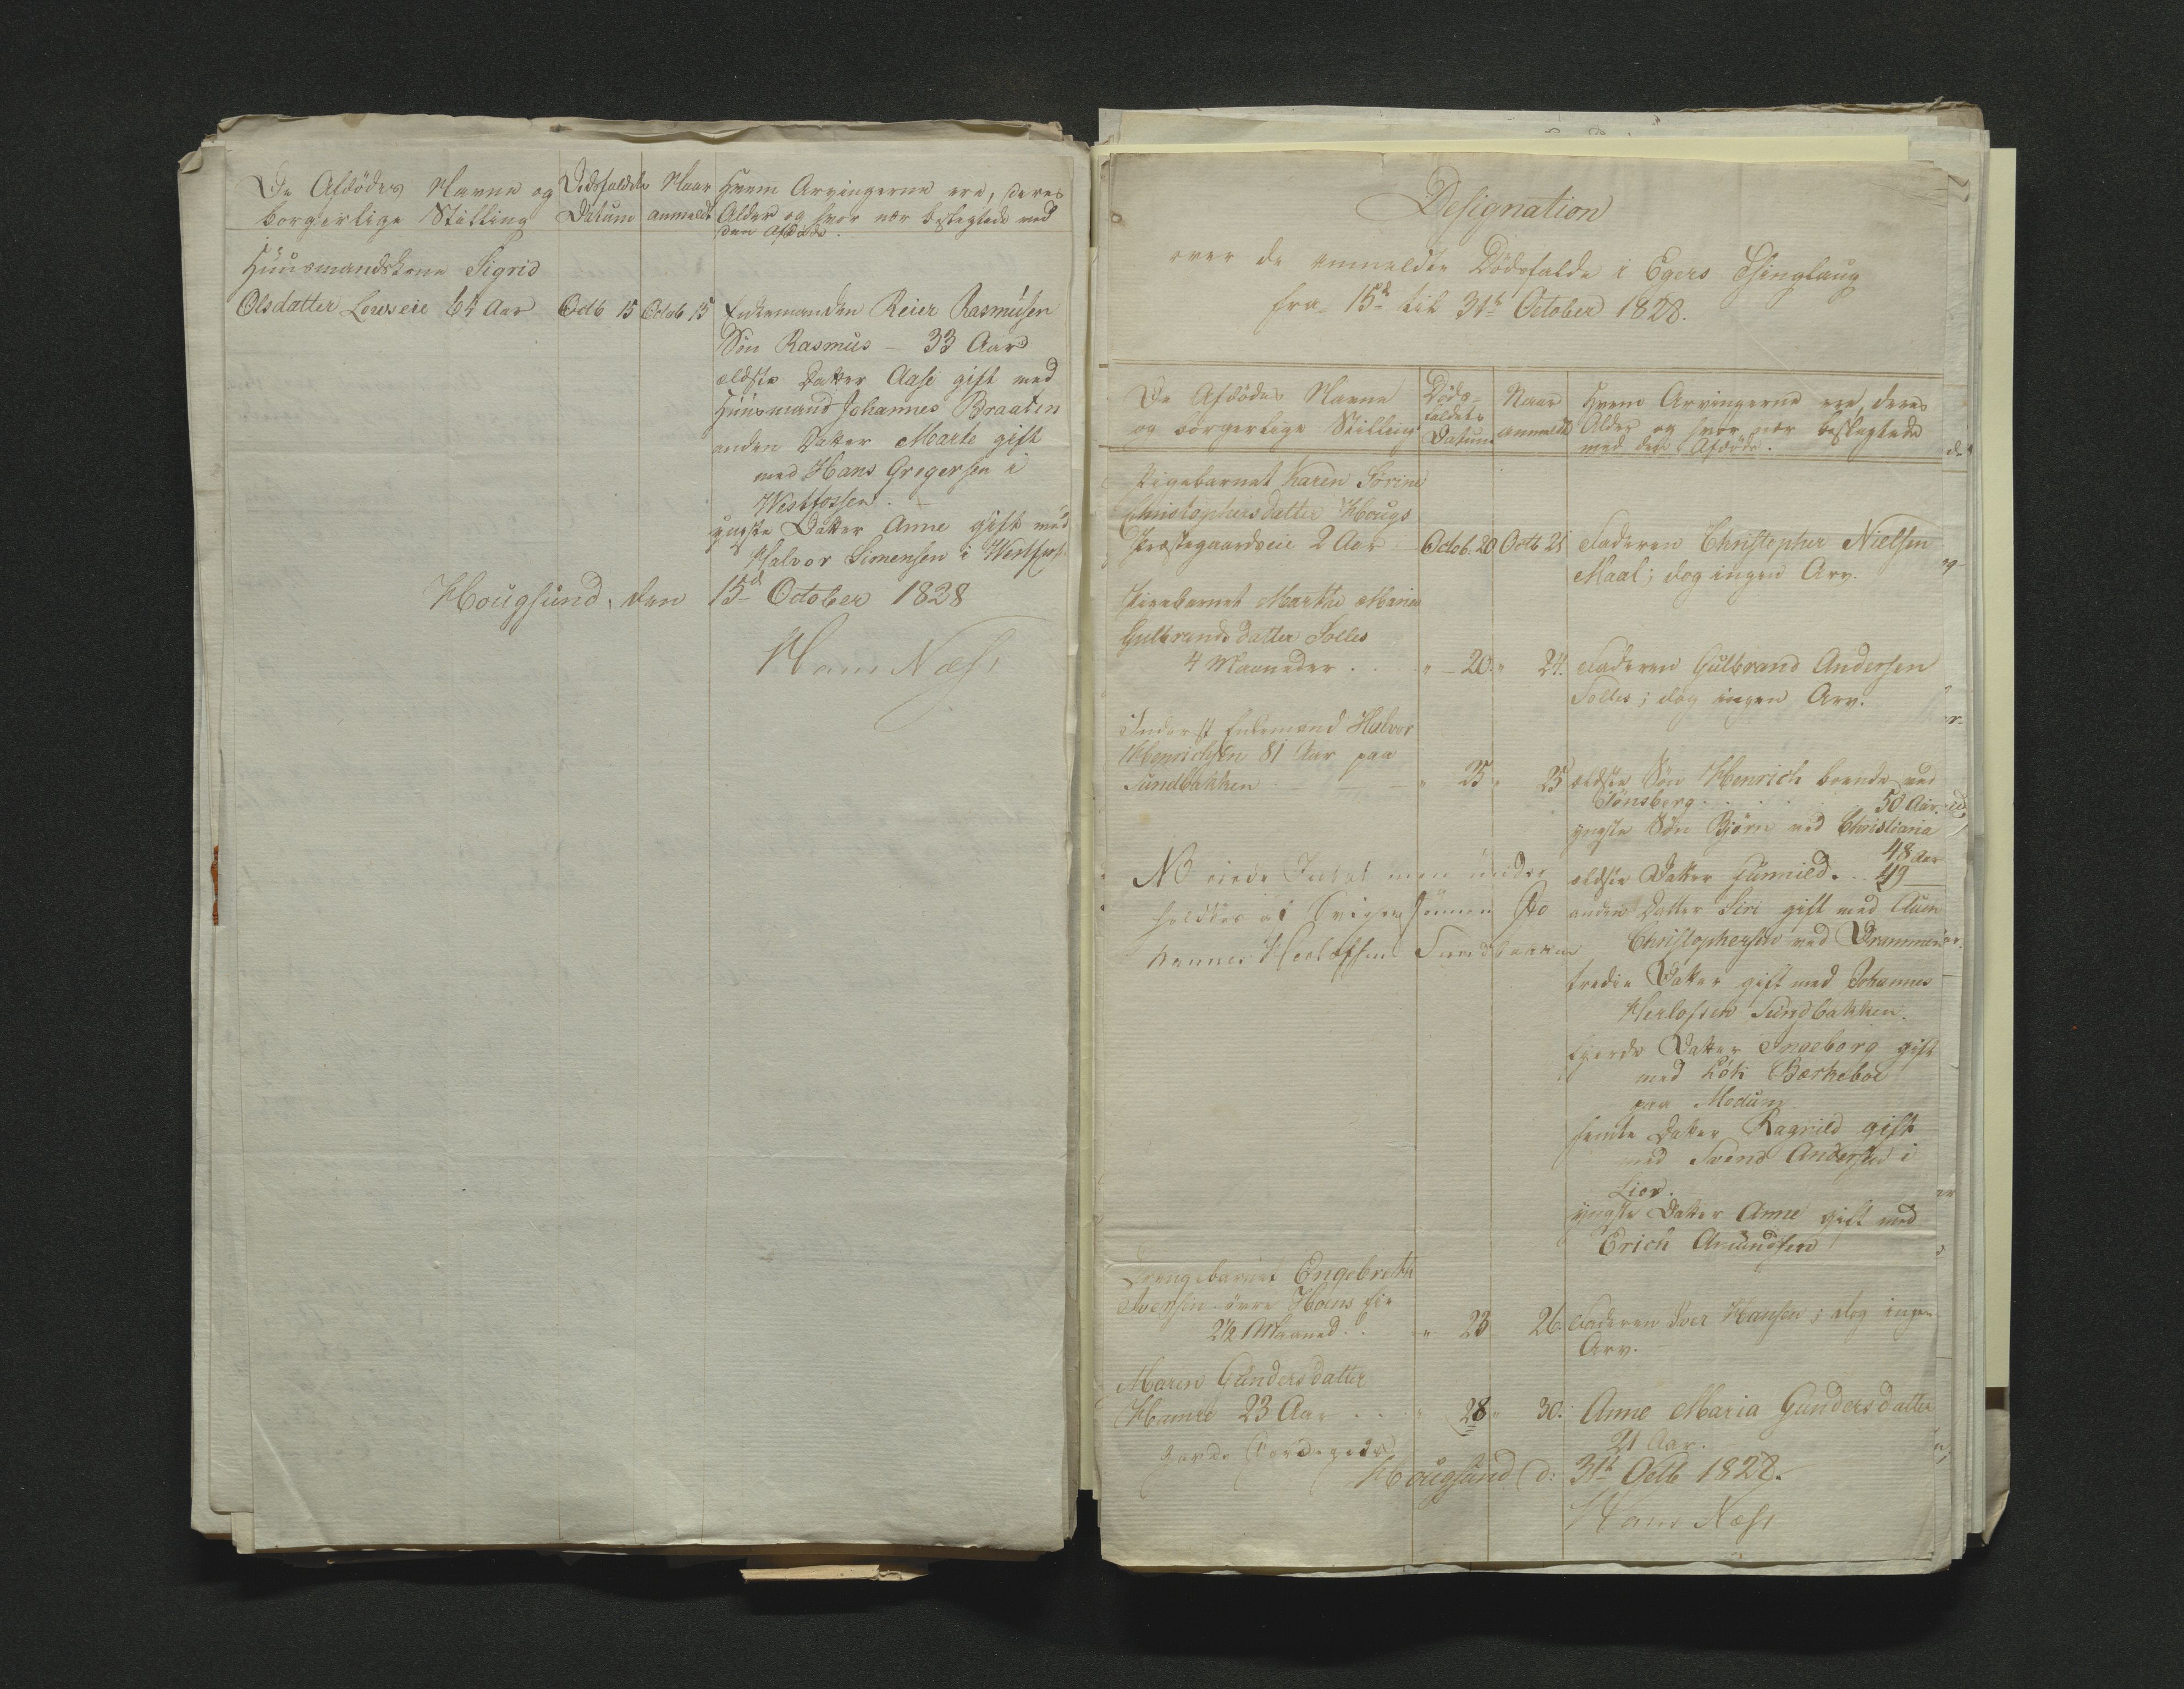 De Afdödes Navne og
borgerlige Stilling
Dödsfaldets
Datum
Naar
anmeldt
Hvem Arvingerne ere, deres
Alder og hvor nær beslegtede med
den Afdöde.
Huusmandskone Sigrid
Olsdatter Lowseie 64 Aar
Octb 15
Octob 15
Enkemanden Reier Rasmusen
Sön Rasmus - 33 Aar
ældste Datter Aase gift med
Huusmand Johannes Braaten
anden Datter Marte gift
med Hans Gregersen i
Westfossen. -
yngste Datter Anne gift med
Halvor Simensen i Westfoss.
Hougsund, den 15d October 1828
Hans Næss
Designation
over de anmeldte Dödsfalde i Egers Thinglaug
fra 15d til 31te October 1828.
De Afdödes Navne
og borgerlige Stilling
Döds-
faldets
Datum
Naar
anmeldt
Hvem Arvingerne ere, deres
Alder og hvor nær beslegtede
med den Afdöde.
Pigebarnet Karen Sørine
Christophersdatter Hougs
Præstegaardseie 2 Aar
Octob. 20
Octb 21
Faderen Christopher Nielsen
Maal; dog ingen Arv.
Pigebarnet Marthe Marie
Gulbrandsdatter Solles
4 Maaneder . .
" - 20.
" 24.
Faderen Gulbrand Andersen
Solles; dog ingen Arv.
Inderst Enkemand Halvor
Henrichsen 81 Aar paa
Sundbakken - - -
" 25
" 25
ældste Sön Henrich boende ved
Tönsberg . . . . 50 Aar
yngste Sön Björn ved Christiania
48 Aar
NB eiede Intet men under
holdtes af Svigersönnen Jo
hannes Herlofsen Sundbakken
ældste Datter Gunnild. . . 49
anden Datter Siri gift med Auen
Christophersen ved Drammen
tredie Datter gift med Johannes
Herlofsen Sundbakken.
fjerde Datter Ingeborg gift
med Bærkeboe
paa Modum
femte Datter Ragnild gift
med Svend Andersen i
Lier.
yngste Datter Anne gift med
Erich Amundsen
Drengebarnet Engebreth
Iversen övre Hoens eie
2½ Maaned. .
" 23
26.
Faderen Iver Hansen; dog ingen
Arv. -
Maren Gundersdatter
Hamre 23 Aar . .
" 28
" 30.
Anne Maria Gundersdatter
21 Aar.
Hougsund d: 31te Octb 1828.
Hans Næss